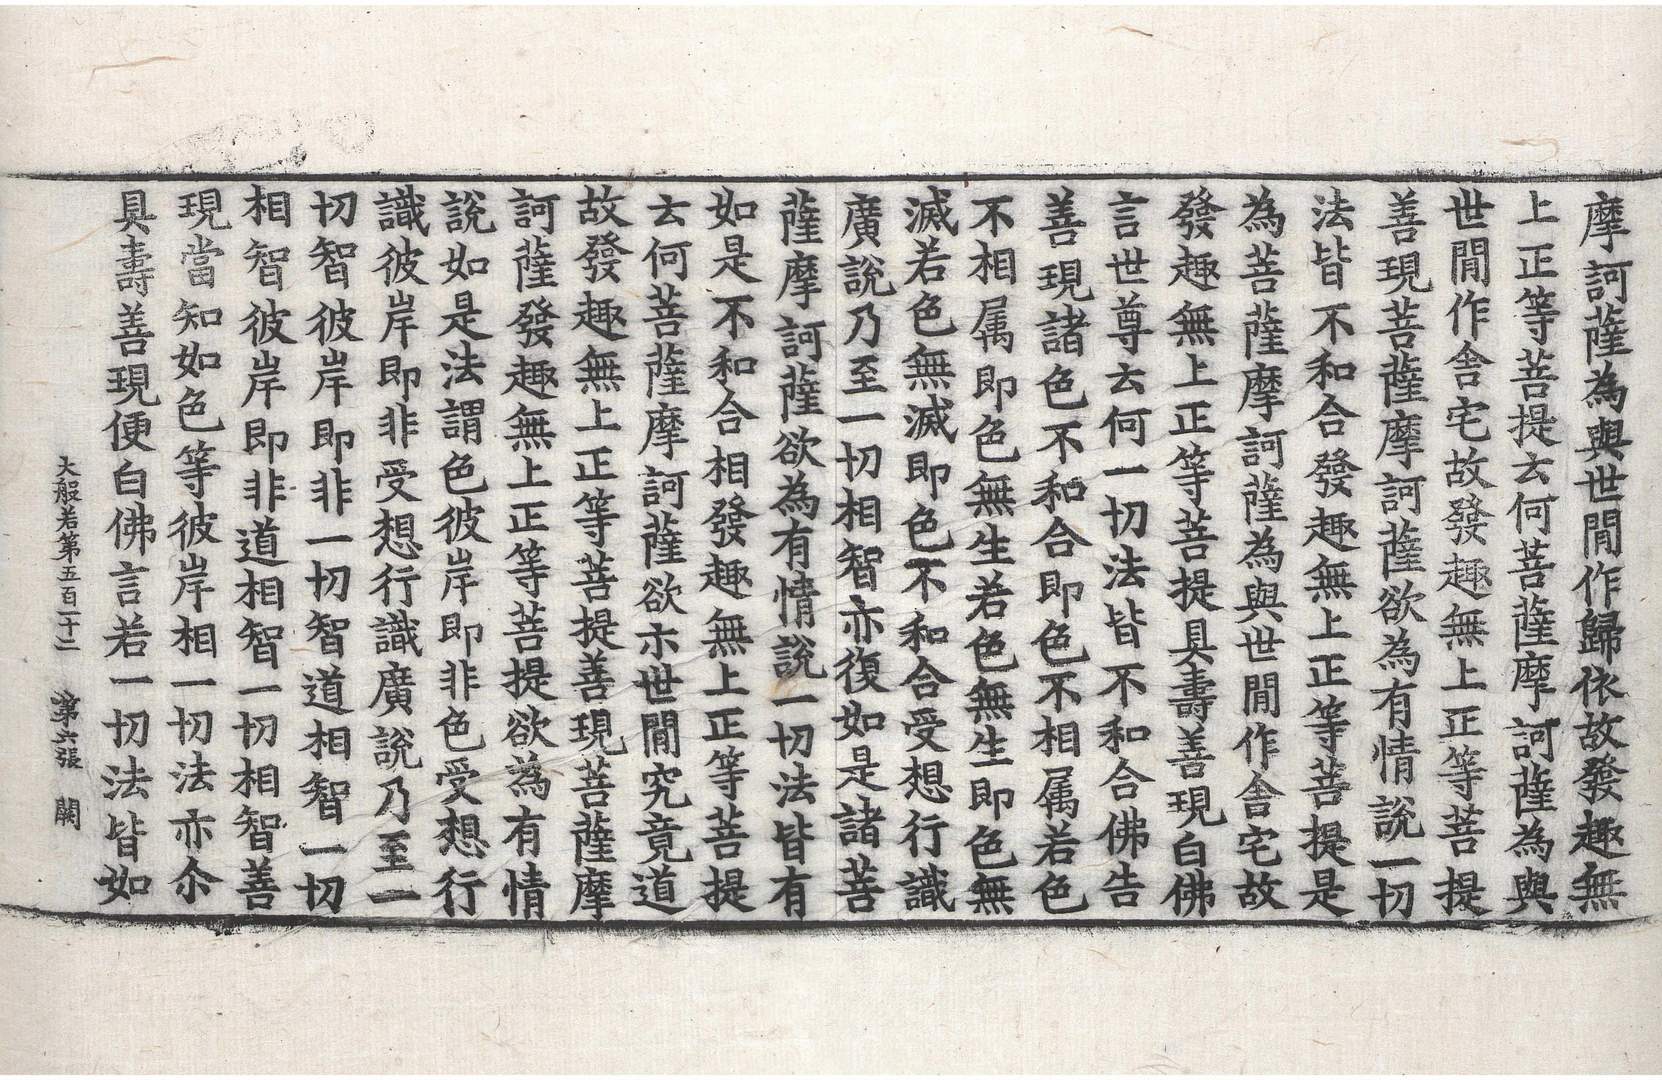 摩訶薩為與世間作歸依故發趣無
上正等菩提云何菩薩摩訶薩為與
世間作舍宅故發趣無上正等菩提
善現菩薩摩訶薩欲為有情說一切
法皆不和合發趣無上正等菩提是
為菩薩摩訶薩為與世間作舍宅故
發趣無上正等菩提具壽善現白佛
言世尊云何一切法皆不和合佛告
善現諸色不和合即色不相属若色
不相属即色無生若色無生即色無
滅若色無滅即色不和合受想行識
廣說乃至一切相智亦復如是諸菩
薩摩訶薩欲為有情說一切法皆有
如是不和合相發趣無上正等菩提
云何菩薩摩訶薩欲示世間究竟道
故發趣無上正等菩提善現菩薩摩
訶薩發趣無上正等菩提欲為有情
說如是法謂色彼岸即非色受想行
識彼岸即非受想行識廣說乃至一
切智彼岸即非一切智道相智一切
相智彼岸即非道相智一切相智善
現當知如色等彼岸相一切法亦尒
具壽善現便白佛言若一切法皆如
大般若第五百二十一　第六張　闕